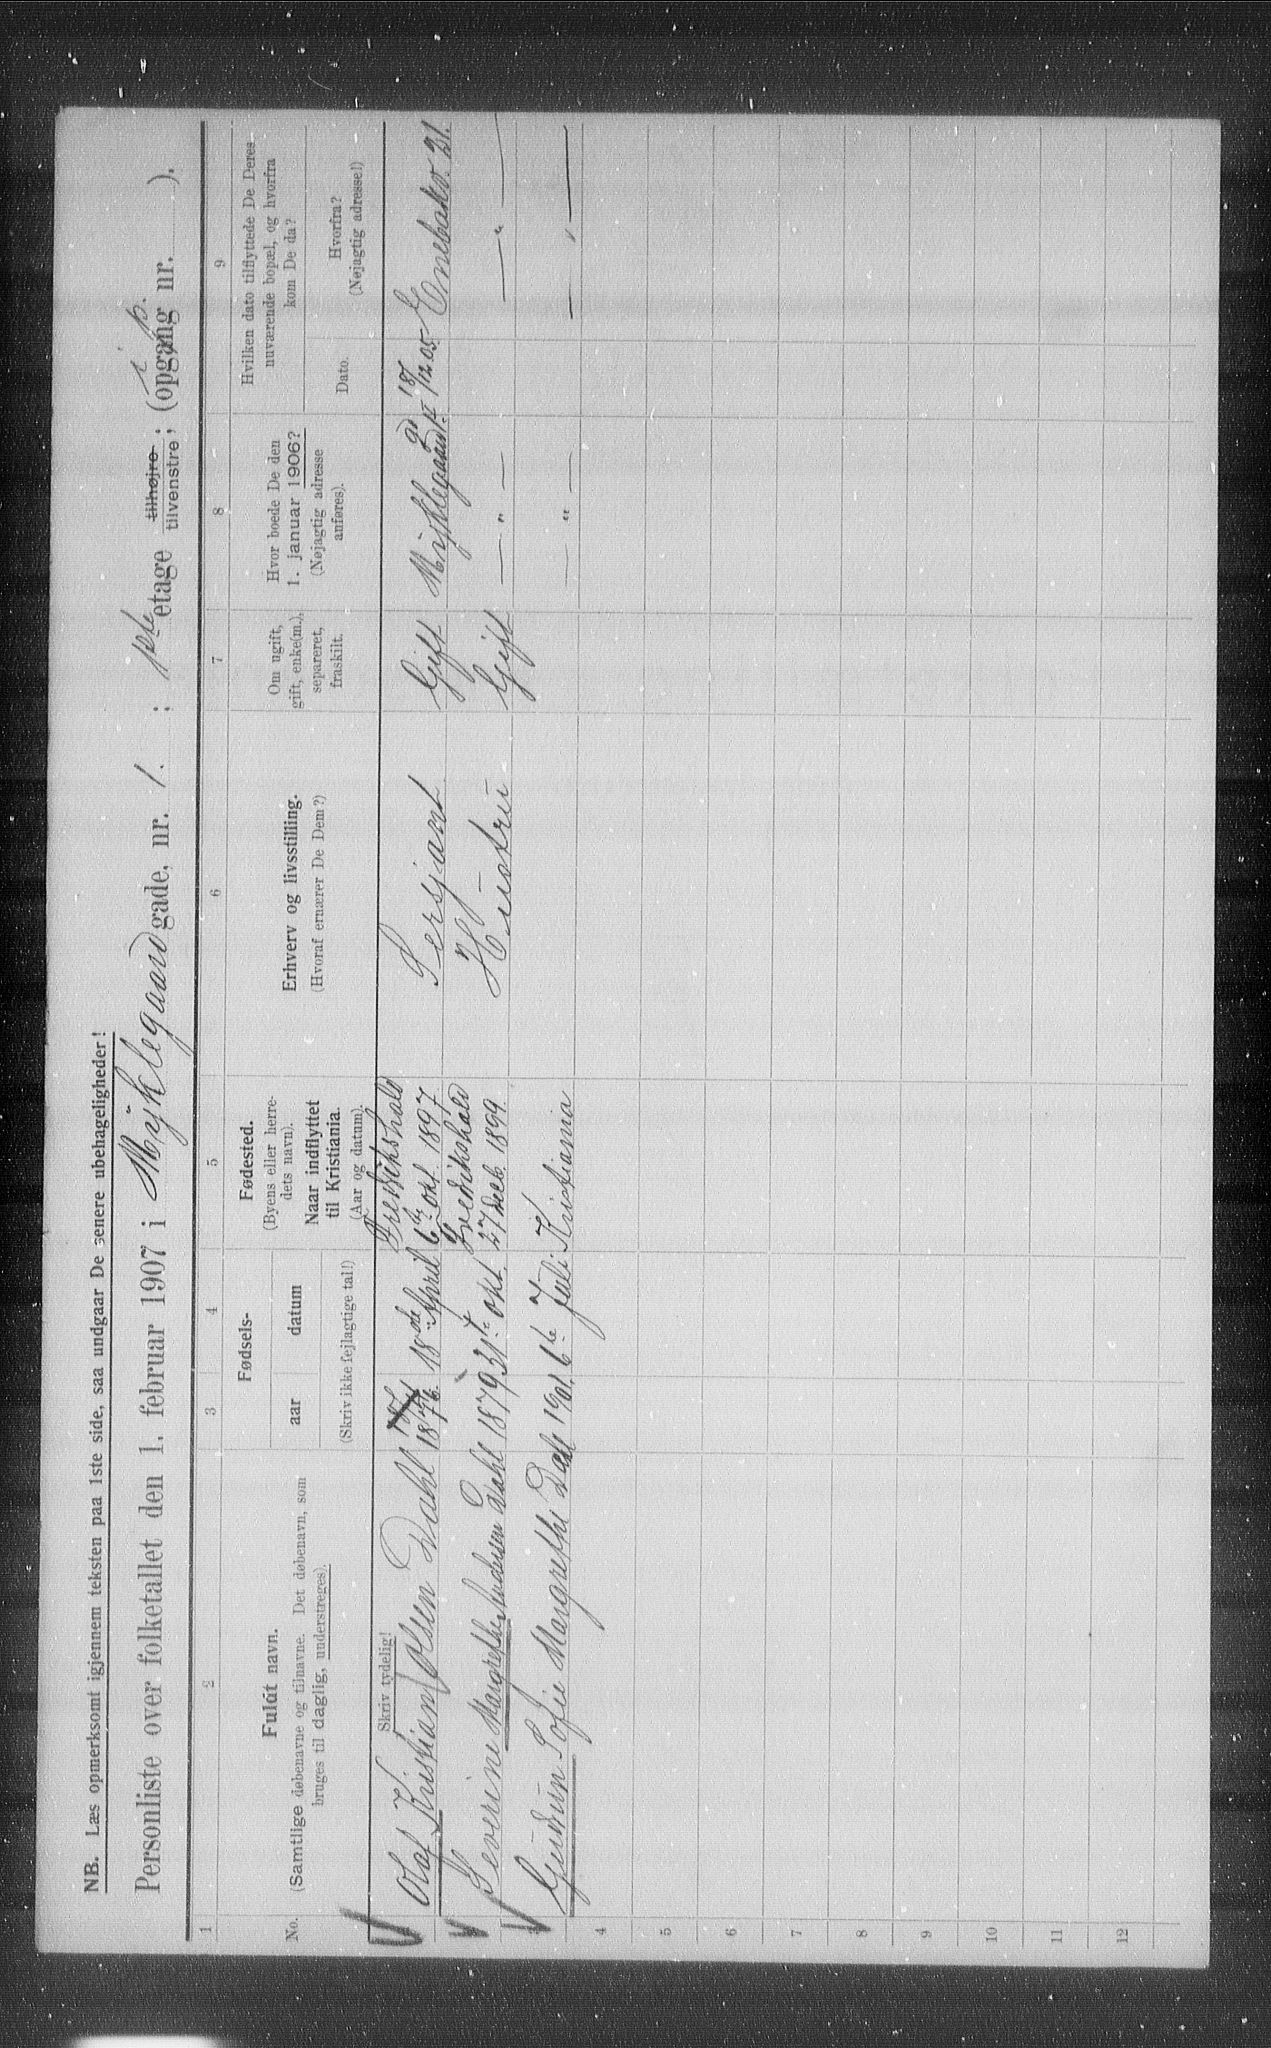 NB. Læs opmerksomt igjennem teksten paa 1ste side, saa undgaar De senere ubehageligheder!
Personliste over folketallet den 1. februar 1907 i Myklegaard gade, nr. 1. ; 1ste etage tilhøjre tilvenstre ; (opgang nr. ).
1 2 3 4 5 6 7 8 9
No.
Fuldt navn.
(Samtlige døbenavne og tilnavne. Det døbenavn, som
bruges til daglig, understreges).
Skriv tydelig!
Fødsels-
aar datum
(Skriv ikke fejlagtige tal!)
Fødested.
(Byens eller herre-
dets navn).
Naar indflyttet
til Kristiania.
(Aar og datum).
Erhverv og livsstilling.
(Hvoraf ernærer De Dem?)
Om ugift,
gift, enke(m.),
separeret,
fraskilt.
Hvor boede De den
1. januar 1906?
(Nøjagtig adresse
anføres).
Hvilken dato tilflyttede De Deres
nuværende bopæl, og hvorfra
kom De da?
Dato.
Hvorfra?
(Nøjagtig adresse!)
Olaf Kristian Olsen Dahl 1876. 18de April Fredrikshald 6te okt. 1897 Sersjant Gift Myklegaardgd 18/12 05 Enebakv. 21.
Severine Margrethe Andersen Dahl 1879 31te okt. Fredrikshald 27 decb. 1899. Hustru Gift — " — — " —
Gudrun Sofie Margrethe Dahl 1901. 6te Juli Kristiania — " — — " —
4
5
6
7
8
9
10
11
12